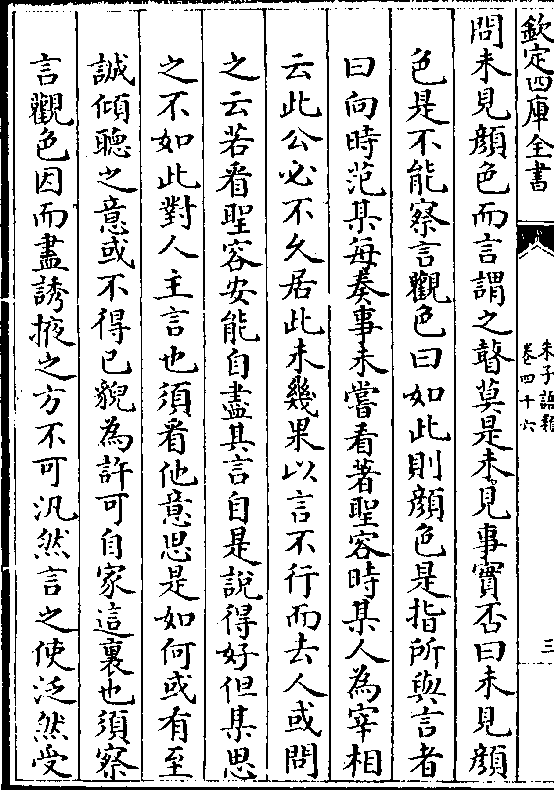 欽定四庫全書
朱子語類
卷四十六
三
問未見顔色而言謂之瞽莫是未見事實否曰未見顔
色是不能察言觀色曰如此則顔色是指所與言者
曰向時范某每奏事未嘗看著聖容時某人為宰相
云此公必不久居此未幾果以言不行而去人或問
之云若看聖容安能自盡其言自是說得好但某思
之不如此對人主言也須看他意思是如何或有至
誠傾聽之意或不得已貌為許可自家這裏也須察
言觀色因而盡誘掖之方不可汎然言之使泛然受